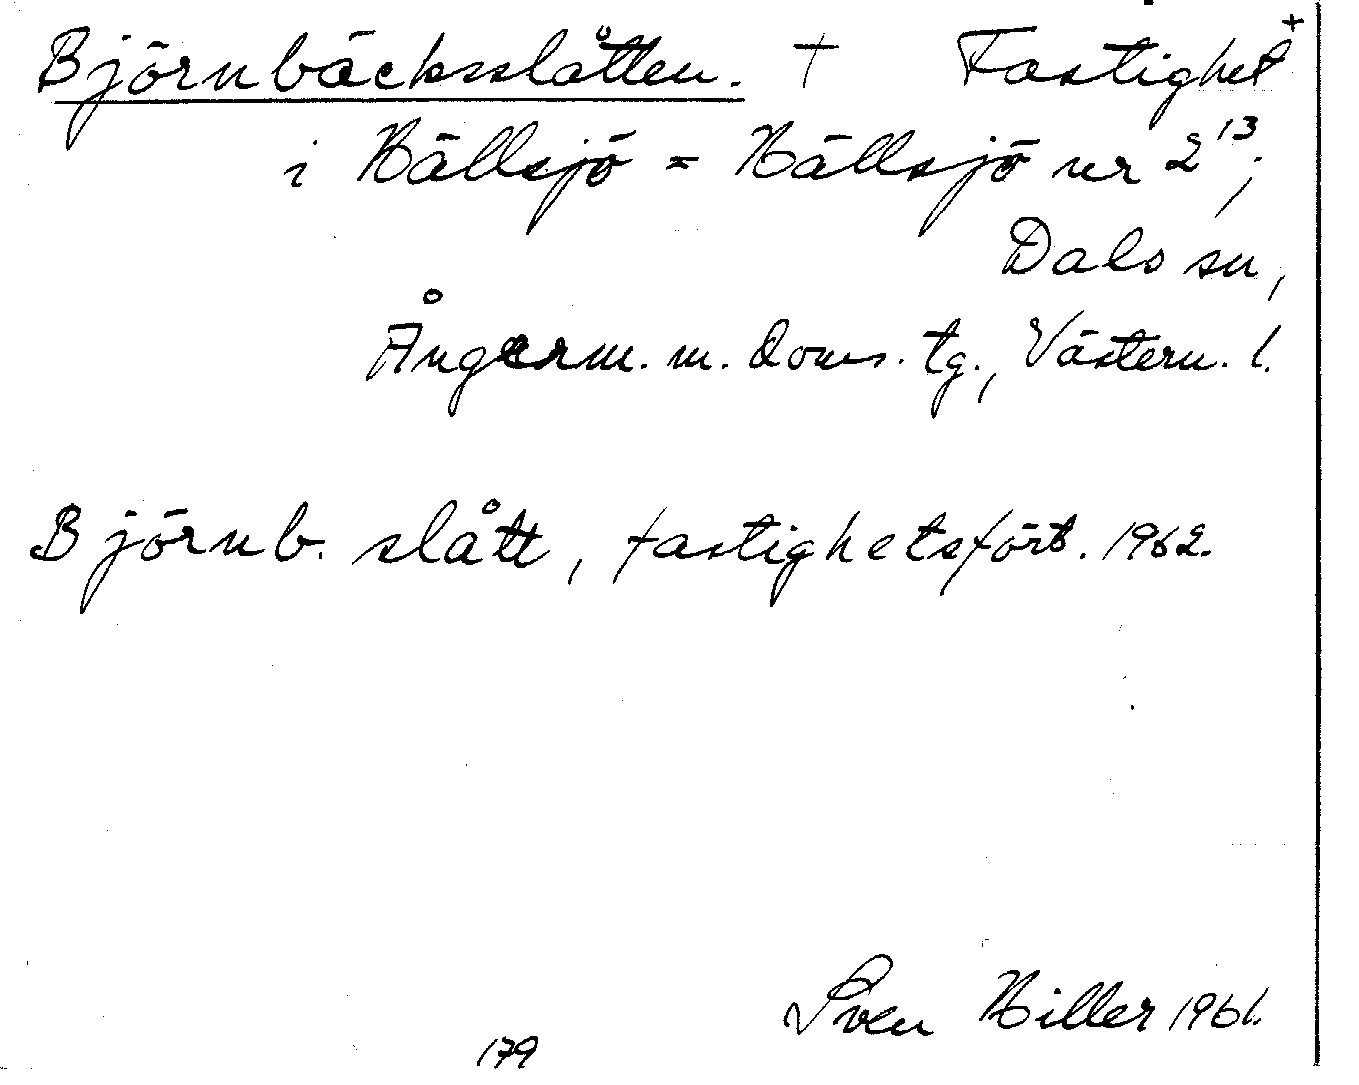 Björnbäcksslåtten. + Fastighet +
i Hällsjö = Hällsjö nr 2¹³;
Dals sn,
Ångerm. m. doms. tg., Västern. l.
Björnb. slått, fastighetsfört. 1962.
Sven Hiller 1961.
179